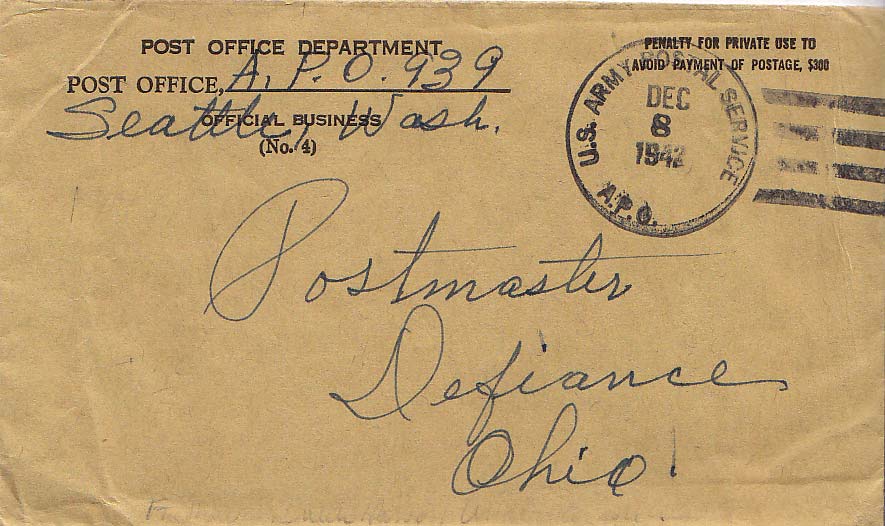 POST OFFICE DEPARTMENT
POST OFFICE, A. P. O. 939
Seattle, Wash.
OFFICIAL BUSINESS
(No. 4)
PENALTY FOR PRIVATE USE TO
AVOID PAYMENT OF POSTAGE, $300
U.S. ARMY POSTAL SERVICE
DEC
8
1942
A.P.O.
Postmaster
Defiance
Ohio